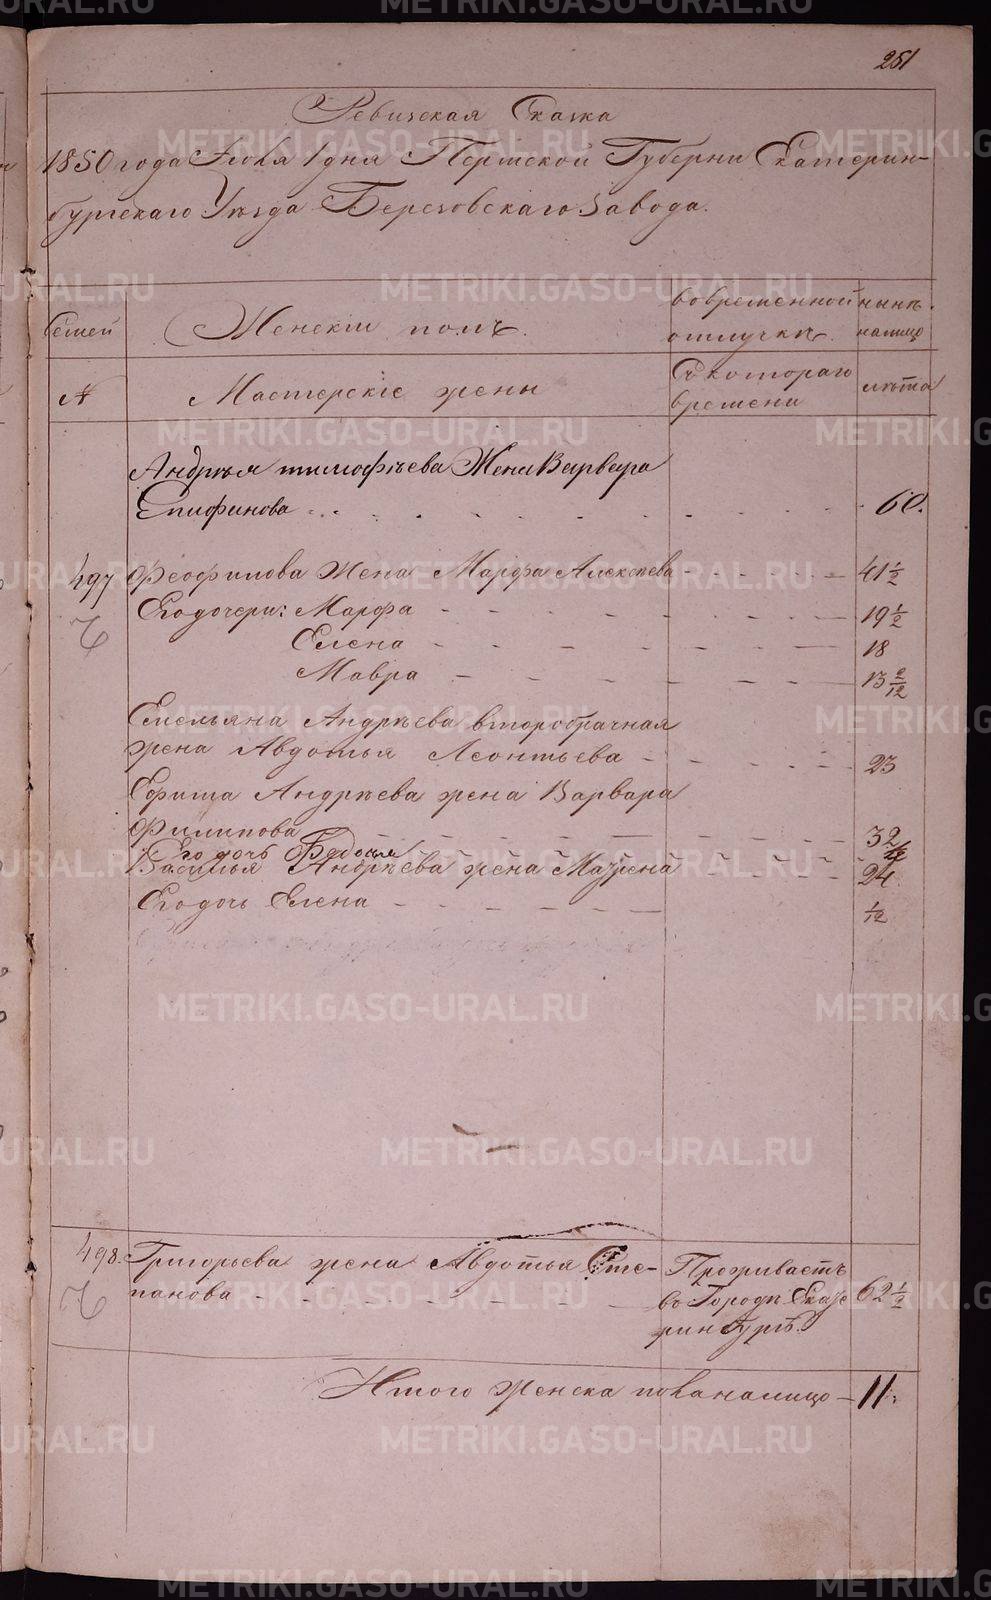 251
Ревизская Сказка
1850 года Июля 1 дня Пермской Губерни Екатерин-
бургскаго Уезда Березовскаго Завода.
Семей
Женскiи полъ.
во временной отлучкѣ.
нынѣ налицо
№
Мастерскiе жены
Съ котораго времени
лѣта
Андрѣя тимофѣева Жена Варвара
Епифинова 60.
497 Феофилова Жена Марфа Алексѣева 41 1/2
Его дочери: Марфа 19 1/2
Елена 18
Мавра 13 2/12
Емельяна Андрѣева второбрачная
жена Авдотья Леонтьева 23
Ефима Андрѣева жена Варвара
Филипова 32
Его дочь Федосья
Василья Андрѣева жена 24
Его дочь Елена 1/12
498. Григорьева жена Авдотья Сте-
панова
Проживаетъ
во Городѣ Екате
ринбургѣ.
62 1/2
Итого женска пола налицо - 11.
METRIKI.GASO-URAL.RU